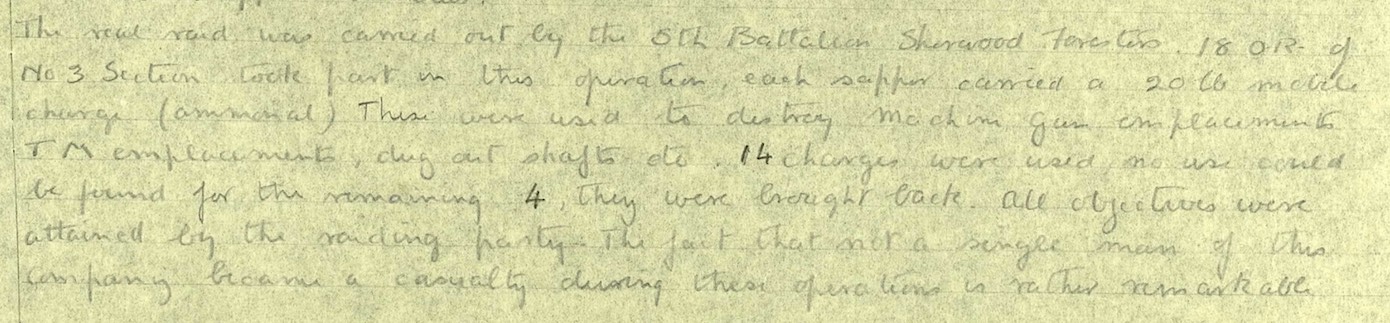 The real raid was carried out by the 5th Battalion Sherwood Foresters. 18 O.R. of
No 3 Section took part in this operation, each sapper carried a 20 lb mobile
charge (ammonal) These were used to destroy Machine Gun emplacements
T M emplacements, dug out shafts etc. 14 charges were used, no use could
be found for the remaining 4, they were brought back. All objectives were
attained by the raiding party. The fact that not a single man of this
Company became a casualty during these operations is rather remarkable